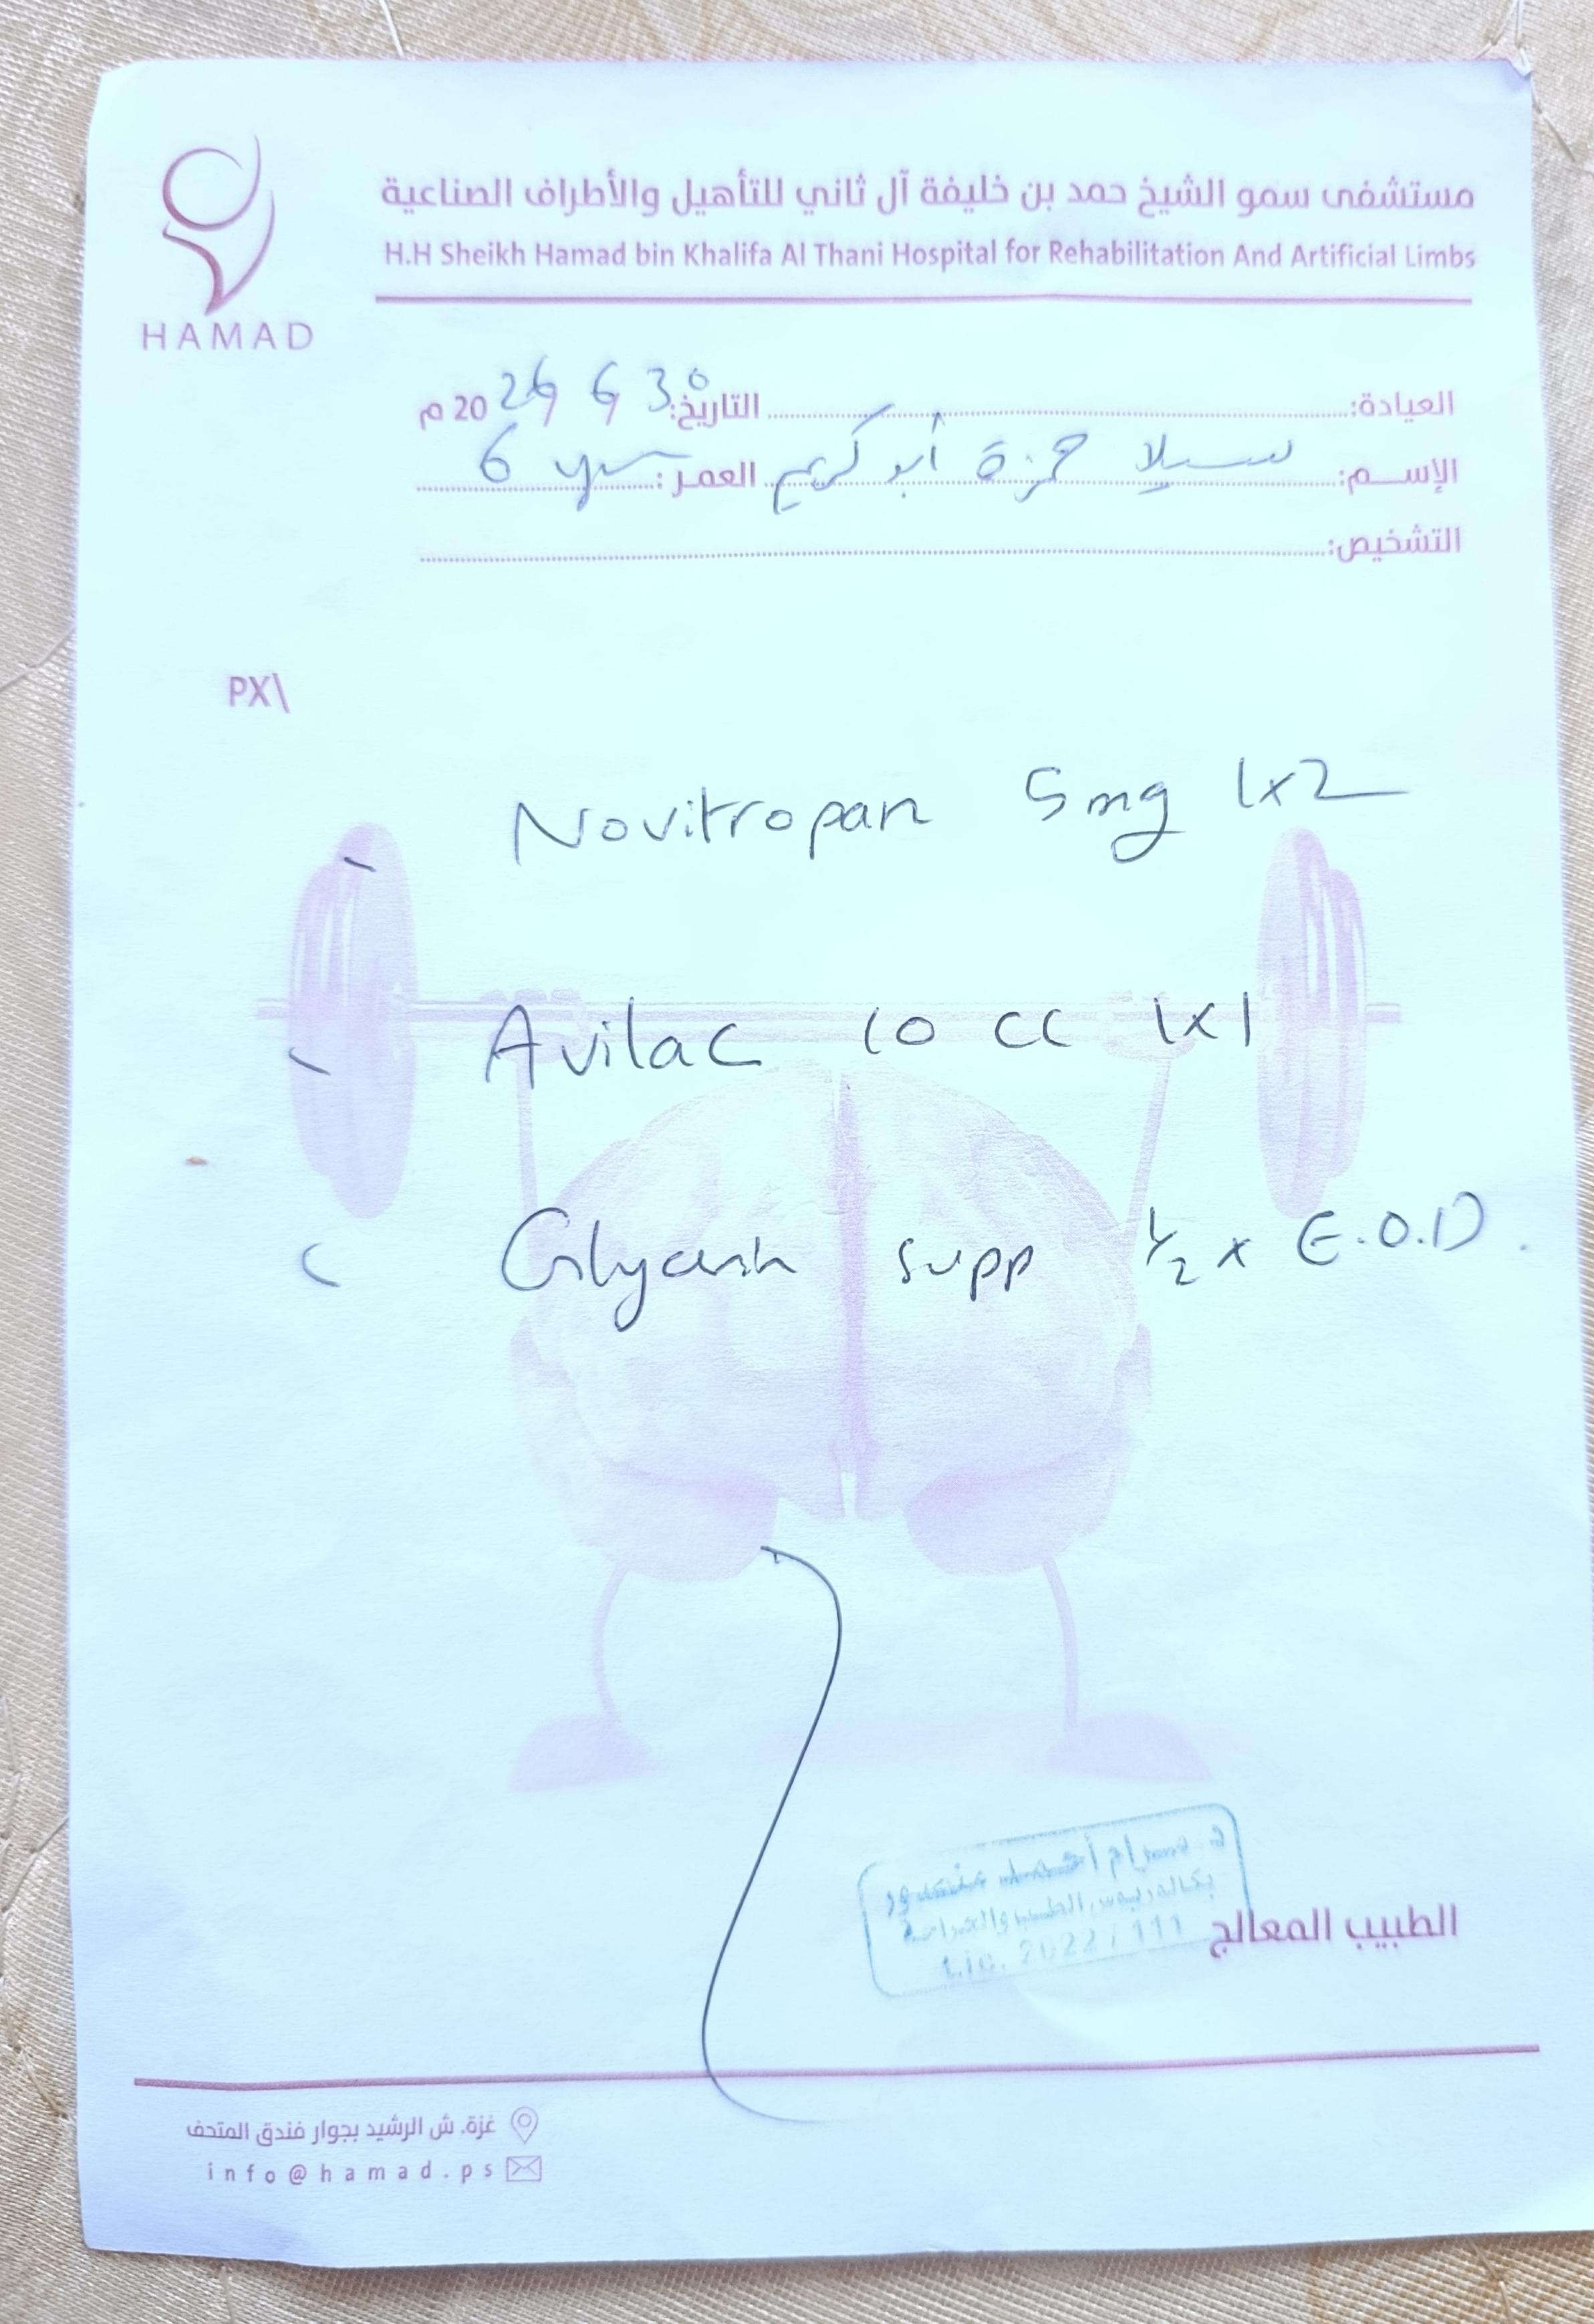 مستشفى سمو الشيخ حمد بن خليفة آل ثاني للتأهيل والأطراف الصناعية
H.H Sheikh Hamad bin Khalifa Al Thani Hospital for Rehabilitation And Artificial Limbs
HAMAD
العيادة: التاريخ: 30 6 2026 م
الإسم: سيلا حمزة أبو كريم العمر: 6 yrs
التشخيص:
PX\
- Novitropan 5mg 1x2
- Avilac 10 cc 1x1
- Glycerin supp 1/2 x E.O.D.
أحمد منصور
بكالوريوس الطب والجراحة
Lic. 2022 / 111
الطبيب المعالج
غزة. ش الرشيد بجوار فندق المتحف
info@hamad.ps